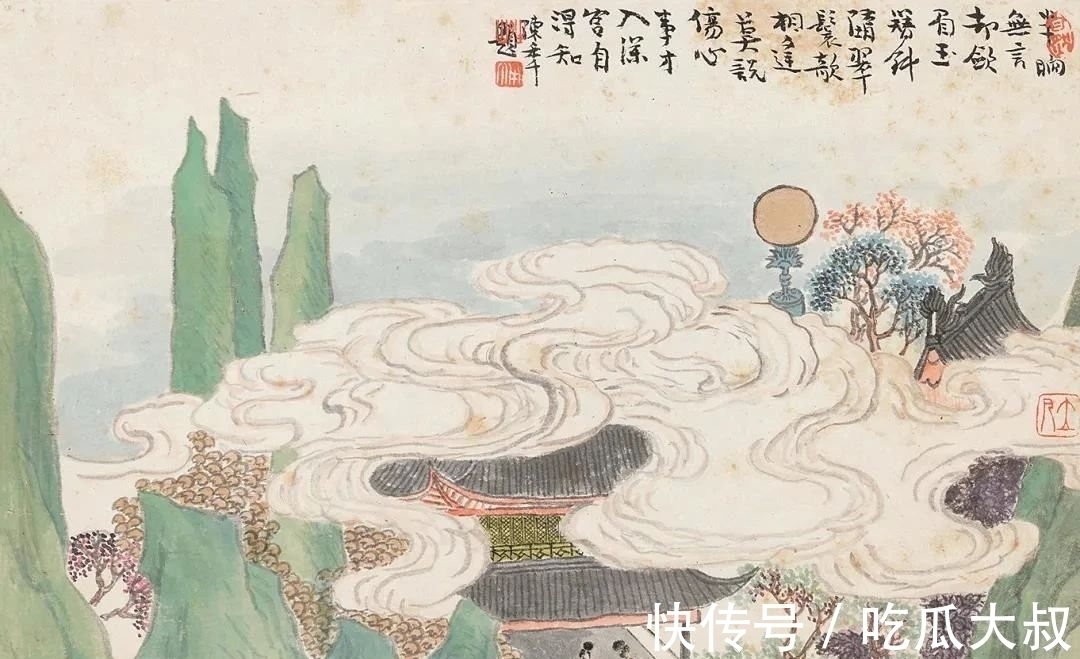 半晌
無言
却斂
眉玉
簪斜
翠
鬟欹
相逢
莫説
傷心
事才
入深
宮自
得知
陳半丁
題
快传号 / 吃瓜大叔